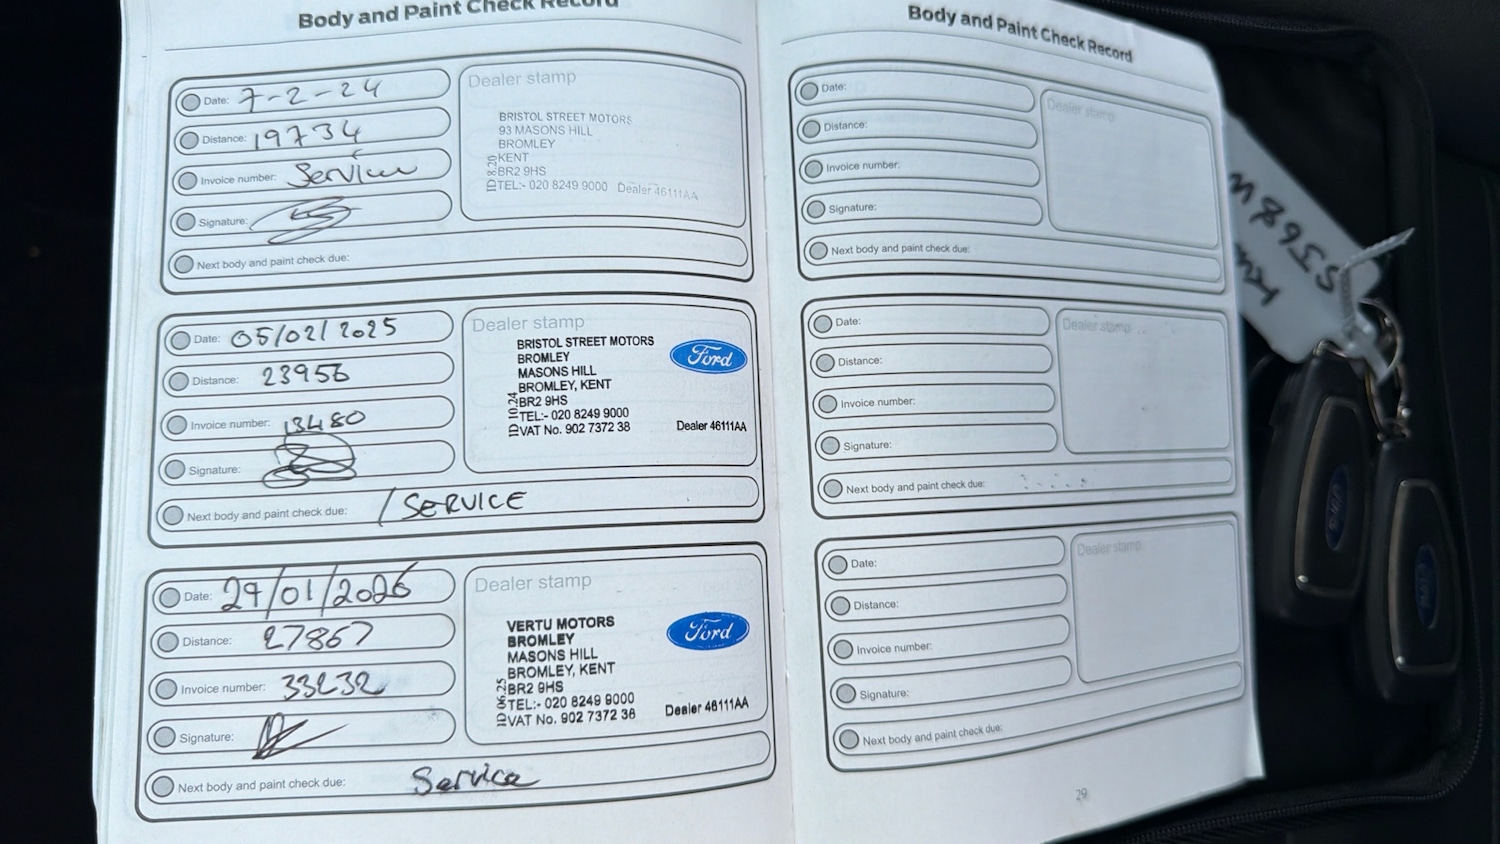 Body and Paint Check Record
Date: 7-2-24
Distance: 19734
Invoice number: Service
Signature:
Next body and paint check due:
Dealer stamp
BRISTOL STREET MOTORS
93 MASONS HILL
BROMLEY
KENT
BR2 9HS
TEL:- 020 8249 9000 Dealer 46111AA
ID 8.20
Date: 05/02/2025
Distance: 23956
Invoice number: 13480
Signature:
Next body and paint check due: / SERVICE
Dealer stamp
BRISTOL STREET MOTORS
BROMLEY
MASONS HILL
BROMLEY, KENT
BR2 9HS
TEL:- 020 8249 9000
VAT No. 902 7372 38
ID 10.24
Ford
Dealer 46111AA
Date: 29/01/2026
Distance: 27867
Invoice number: 33232
Signature:
Next body and paint check due: Service
Dealer stamp
VERTU MOTORS
BROMLEY
MASONS HILL
BROMLEY, KENT
BR2 9HS
TEL:- 020 8249 9000
VAT No. 902 7372 38
ID 06.25
Ford
Dealer 46111AA
Body and Paint Check Record
Date:
Distance:
Invoice number:
Signature:
Next body and paint check due:
Dealer stamp
Date:
Distance:
Invoice number:
Signature:
Next body and paint check due:
Dealer stamp
Date:
Distance:
Invoice number:
Signature:
Next body and paint check due:
Dealer stamp
29
Ford
Ford